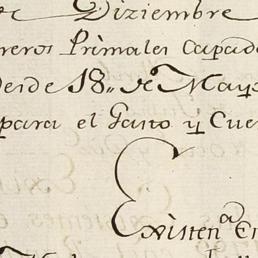 Diziembre
reros Primales capad
desde 18,, de Mayo
para el Gasto y Cue
Existen.a En